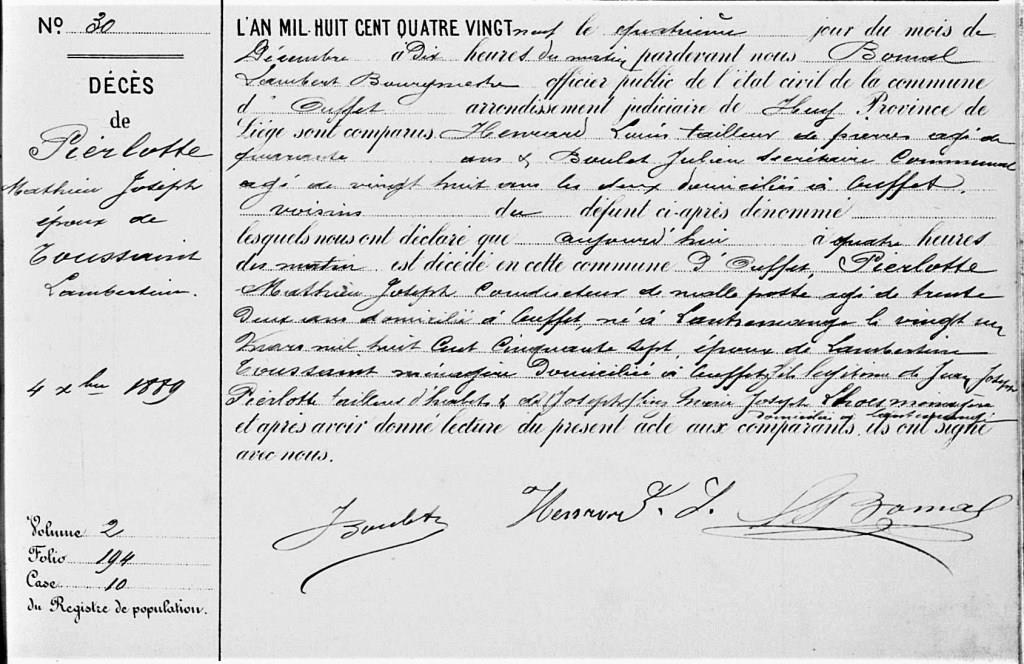 N° 30
DÉCÈS
de
Pierlotte
Mathieu Joseph
époux de
Toussaint
Lambertine.
4 Xbre 1889
Volume 2
Folio 194
Case 10
du Registre de population.
L'AN MIL HUIT CENT QUATRE VINGT neuf le quatrième jour du mois de
Décembre à Dix heures du matin pardevant nous Bomal
Lambert Bourgmestre officier public de l'état civil de la commune
d'Ouffet arrondissement judiciaire de Huy Province de
Liège sont comparus Henrard Louis tailleur de pierres agé de
quarante ans & Boulet Julien Secrétaire Communal
agé de vingt huit ans les deux domiciliés à Ouffet.
voisins du défunt ci-après dénommé
lesquels nous ont déclaré que aujourd'hui à quatre heures
du matin est décédé en cette commune d'Ouffet, Pierlotte
Mathieu Joseph Conducteur de malle poste agé de trente
deux ans domicilié à Ouffet, né à Lantremange le vingt un
Mars mil huit Cent Cinquante sept époux de Lambertine
Toussaint ménagère Domiciliée à Ouffet, fils légitime de Jean Joseph
Pierlotte tailleur d'habits & de Marie Joseph ménagère
domiciliés à
et après avoir donné lecture du présent acte aux comparants, ils ont signé
avec nous.
J Boulet
Henrard L. J.
L Bomal